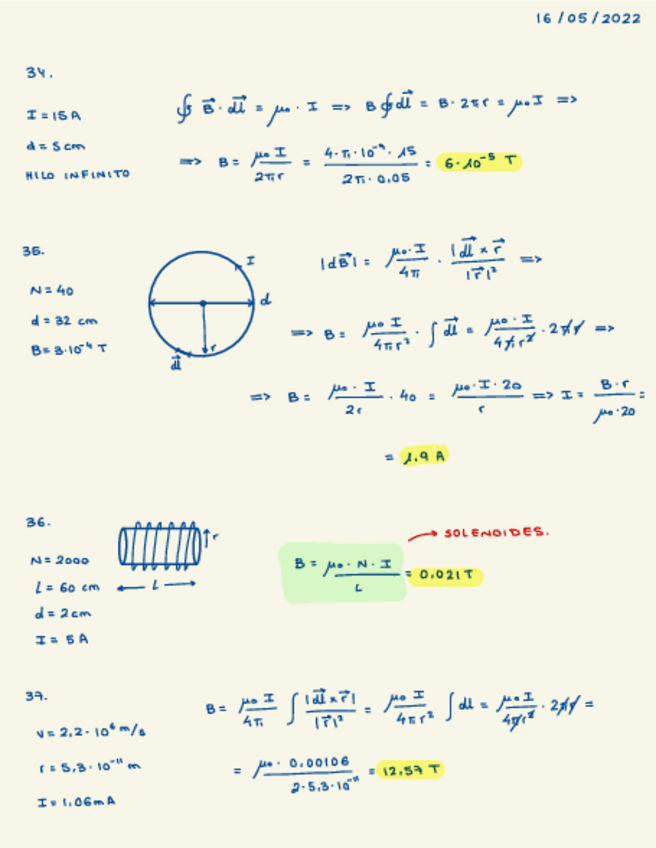 16/05/2022
34.
I = 15 A
d = 5 cm
HILO INFINITO
∮ B⃗ · dl⃗ = μ₀ · I => B ∮ dl⃗ = B · 2πr = μ₀ I =>
=> B = μ₀ I / 2πr = 4·π·10⁻⁷ · 15 / 2π · 0.05 = 6·10⁻⁵ T
35.
N = 40
d = 32 cm
B = 3·10⁻⁴ T
I
d
r
dl⃗
|dB⃗| = μ₀·I / 4π · |dl⃗ x r⃗| / |r⃗|² =>
=> B = μ₀ I / 4πr² · ∫ dl⃗ = μ₀ · I / 4πr² · 2πr =>
=> B = μ₀ · I / 2r · 40 = μ₀ · I · 20 / r => I = B · r / μ₀ · 20 =
= 1.9 A
36.
N = 2000
L = 60 cm
d = 2 cm
I = 5 A
r
L
B = μ₀ · N · I / L = 0.021 T
SOLENOIDES.
37.
v = 2,2 · 10⁶ m/s
r = 5,3 · 10⁻¹¹ m
I = 1,06 mA
B = μ₀ I / 4π ∫ |dl⃗ x r⃗| / |r⃗|² = μ₀ I / 4πr² ∫ dl = μ₀ I / 4πr² · 2πr =
= μ₀ · 0.00106 / 2·5,3·10⁻¹¹ = 12,57 T